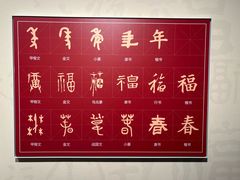 年 年 年 年 年
甲骨文 金文 小篆 隶书 楷书
福 福 福 福 福 福
甲骨文 金文 隶书 行书 楷书
春 春 春 春 春 春
甲骨文 金文 战国文 小篆 隶书 楷书